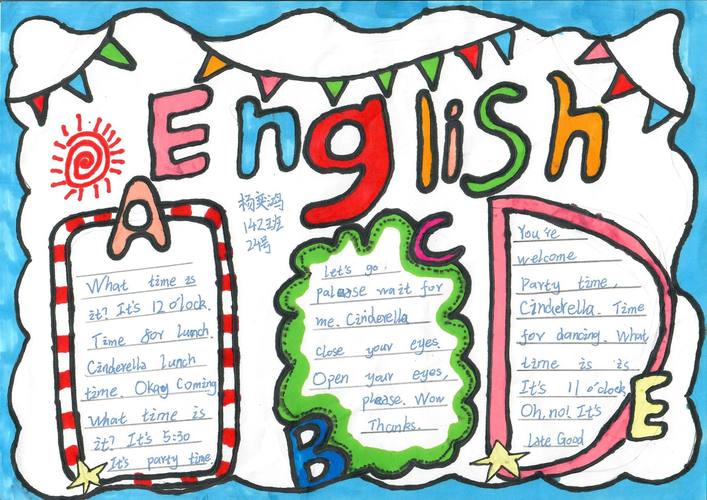 English
杨奕鸿
142班
24号
A
What time is
it? It's 12 o'clock.
Time for lunch.
Cinderella lunch
time. Okay Coming
What time is
it? It's 5:30
It's party time.
B
C
Let's go.
palease wait for
me. Cinderella
close your eyes.
Open your eyes,
please. Wow
Thanks.
D
You're
welcome
Party time,
Cinderella. Time
for dancing. What
time is is
It's 11 o'clock
Oh, no! It's
Late Good
E